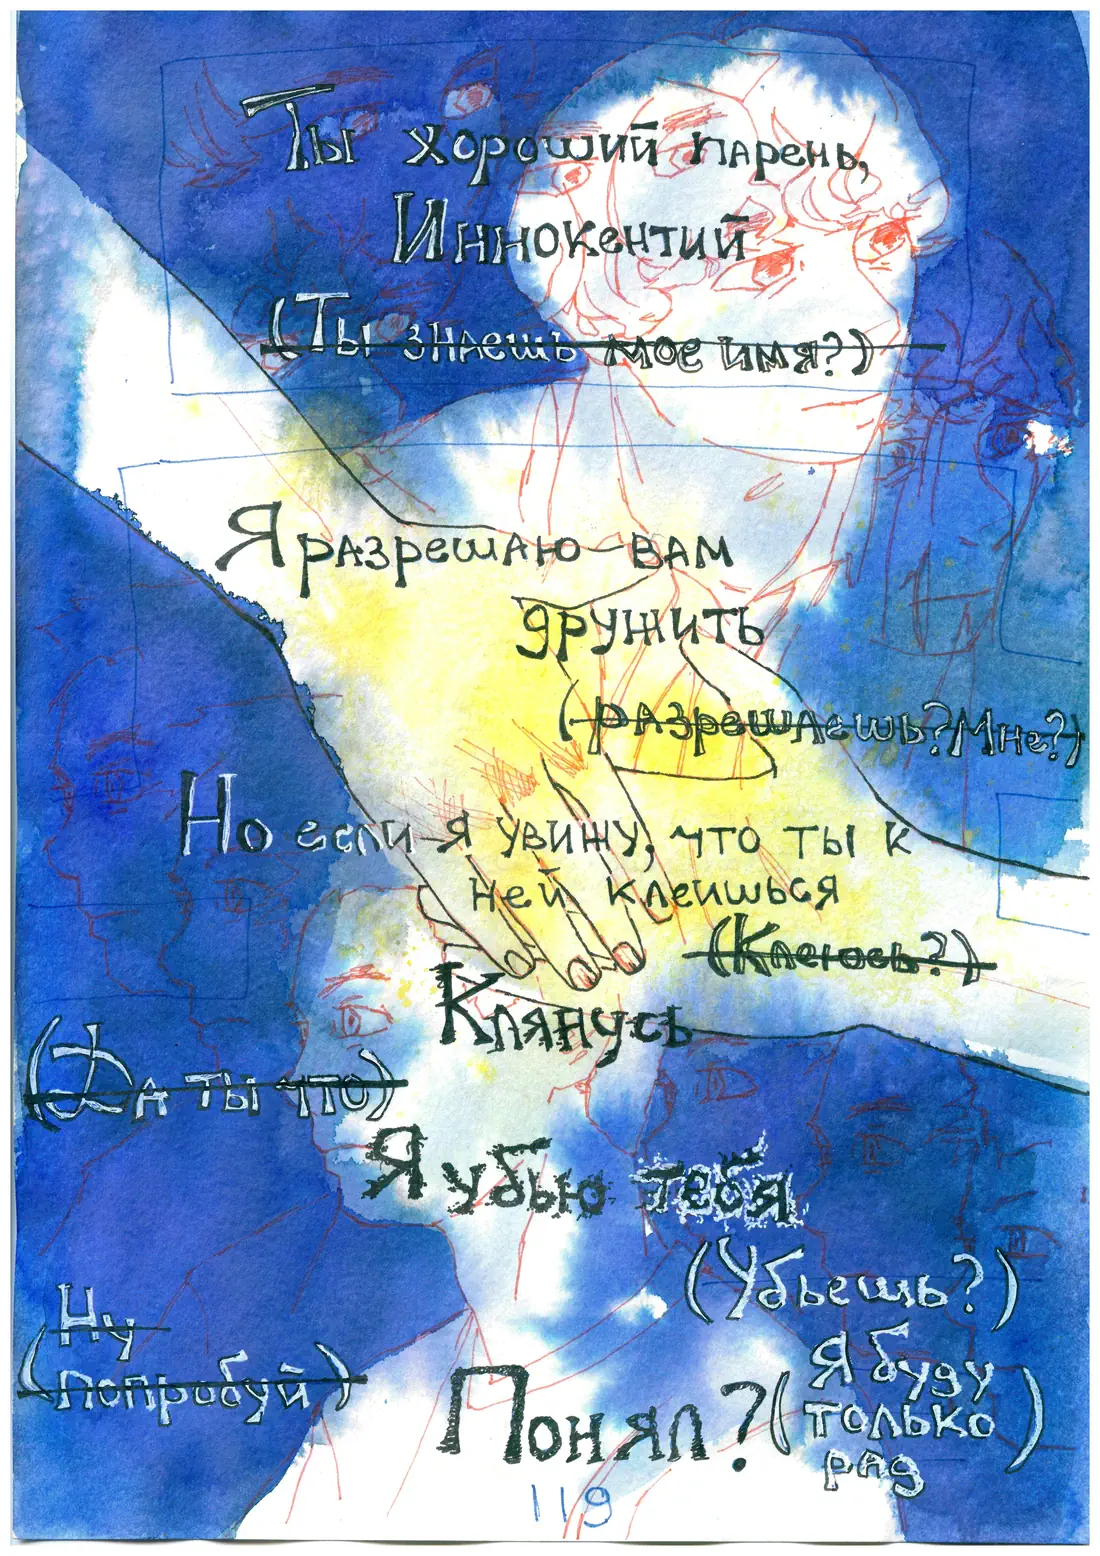 Ты хороший парень,
Иннокентий
(Ты знаешь мое имя?)
Я разрешаю вам
дружить
(разрешаешь? Мне?)
Но если я увижу, что ты к
ней клеишься
(Клеюсь?)
Клянусь
(Да ты что)
Я убью тебя
(Убьешь?)
Ну
(попробуй)
Понял?
(Я буду
только
рад)
119